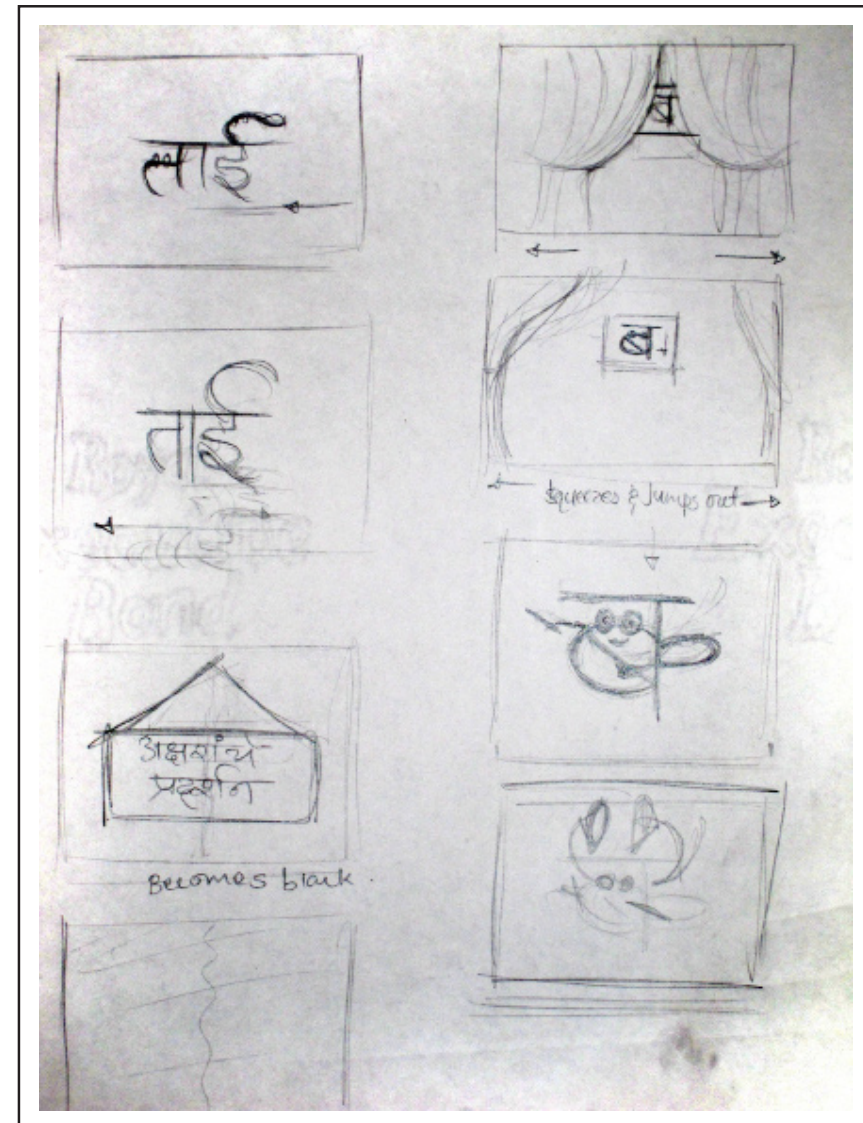 ताई
ताई
अक्षरांचे
प्रदर्शन
Becomes blank.
ब
ब
Squeezes & Jumps out
Bond